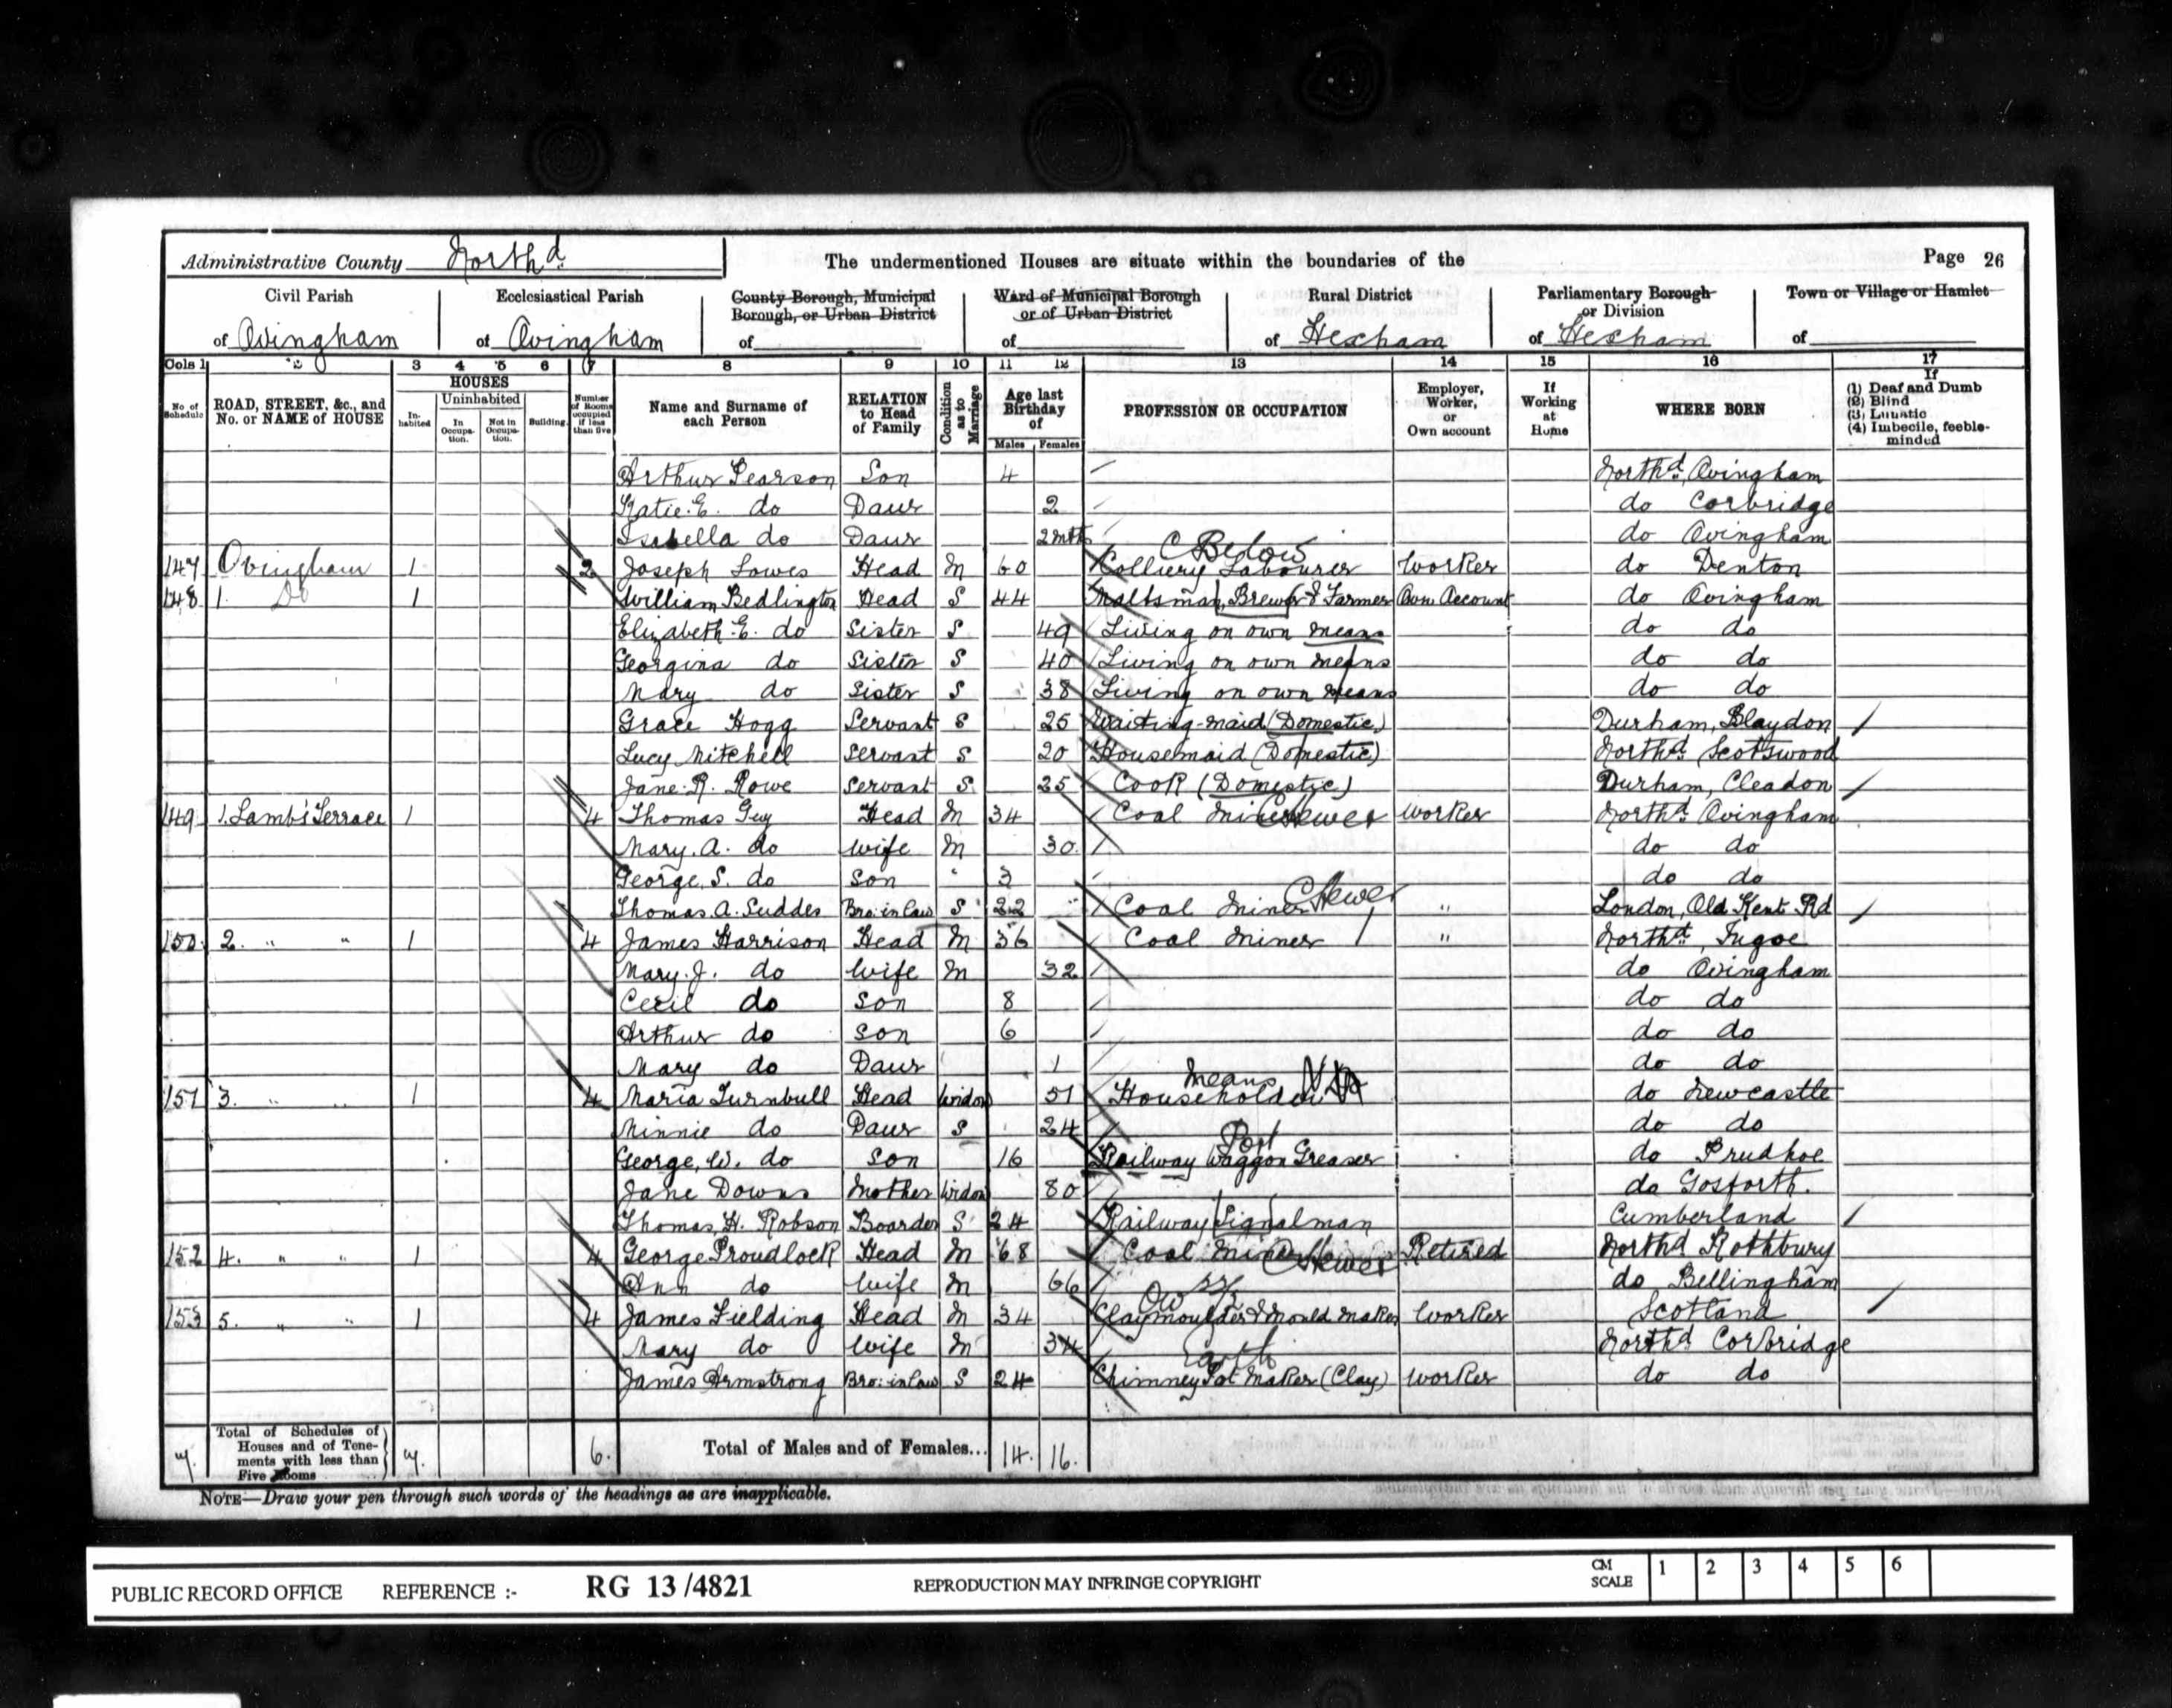 Administrative County North'd The undermentioned Houses are situate within the boundaries of the Page 26
Civil Parish Ecclesiastical Parish County Borough, Municipal Borough, or Urban District Ward of Municipal Borough or of Urban District Rural District Parliamentary Borough or Division Town or Village or Hamlet
of Ovingham of Ovingham of of of Hexham of Hexham of
Cols 1 2 3 4 5 6 7 8 9 10 11 12 13 14 15 16 17
No of Schedule ROAD, STREET, &c., and No. or NAME of HOUSE HOUSES In-habited Uninhabited In Occupa-tion. Not in Occupa-tion. Building Number of Rooms occupied if less than five Name and Surname of each Person RELATION to Head of Family Condition as to Marriage Age last Birthday of Males Females PROFESSION OR OCCUPATION Employer, Worker, or Own account If Working at Home WHERE BORN If (1) Deaf and Dumb (2) Blind (3) Lunatic (4) Imbecile, feeble-minded
Arthur Pearson Son 4 North'd, Ovingham
Katie. E. do Daur 2 do Corbridge
Isabella do Daur 2 mths do Ovingham
C Below
147 Ovingham 1 2 Joseph Lowes Head M 60 Colliery Labourer Worker do Denton
148 1. Do 1 William Bedlington Head S 44 Maltsman, Brewer & Farmer Own Account do Ovingham
Elizabeth. E. do Sister S 49 Living on own means do do
Georgina do Sister S 40 Living on own means do do
Mary do Sister S 38 Living on own means do do
Grace Hogg Servant S 25 Waiting-maid (Domestic) Durham, Blaydon
Lucy Mitchell Servant S 20 Housemaid (Domestic) North'd Scotswood
Jane. R. Rowe Servant S 25 Cook (Domestic) Durham, Cleadon
149 1. Lamb's Terrace 1 4 Thomas Guy Head M 34 Coal Miner Hewer Worker North'd Ovingham
Mary. A. do Wife M 30 do do
George. S. do Son 3 do do
Thomas. A. Suddes Bro: in law S 22 Coal Miner Hewer " London, Old Kent Rd
150 2. " " 1 4 James Harrison Head M 36 Coal Miner " North'd, Ingoe
Mary. J. do Wife M 32 do Ovingham
Cecil do Son 8 do do
Arthur do Son 6 do do
Mary do Daur 1 do do
Means
151 3. " " 1 4 Maria Turnbull Head Widow 51 Householder do Newcastle
Minnie do Daur S 24 do do
George, W. do Son 16 Railway Waggon Greaser do Prudhoe
Jane Downs Mother Widow 80 do Gosforth.
Thomas, H. Robson Boarder S 24 Railway Signalman Cumberland
152 4. " " 1 4 George Proudlock Head M 68 Coal Miner Hewer Retired North'd Rothbury
Ann do Wife M 66 do Bellingham
153 5. " " 1 4 James Fielding Head M 34 Claymoulder & Mould Maker Worker Scotland
Mary do Wife M 34 North'd Corbridge
Earth
James Armstrong Bro: in law S 24 Chimney Pot Maker (Clay) Worker do do
7. Total of Schedules of Houses and of Tene-ments with less than Five Rooms 7. 6. Total of Males and of Females... 14. 16.
NOTE—Draw your pen through such words of the headings as are inapplicable.
PUBLIC RECORD OFFICE REFERENCE :- RG 13/4821 REPRODUCTION MAY INFRINGE COPYRIGHT CM SCALE 1 2 3 4 5 6